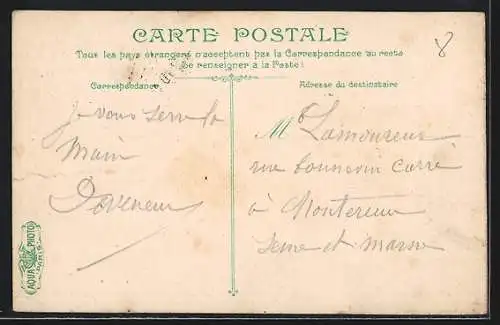 CARTE POSTALE
8
Tous les pays étrangers n'acceptent pas la Correspondance au recto
(Se renseigner à la Poste)
Correspondance
Adresse du destinataire
Je vous serre la
main
M Lamoureux
rue Carré
à Montereau
Seine et Marne
AQUA PHOTO